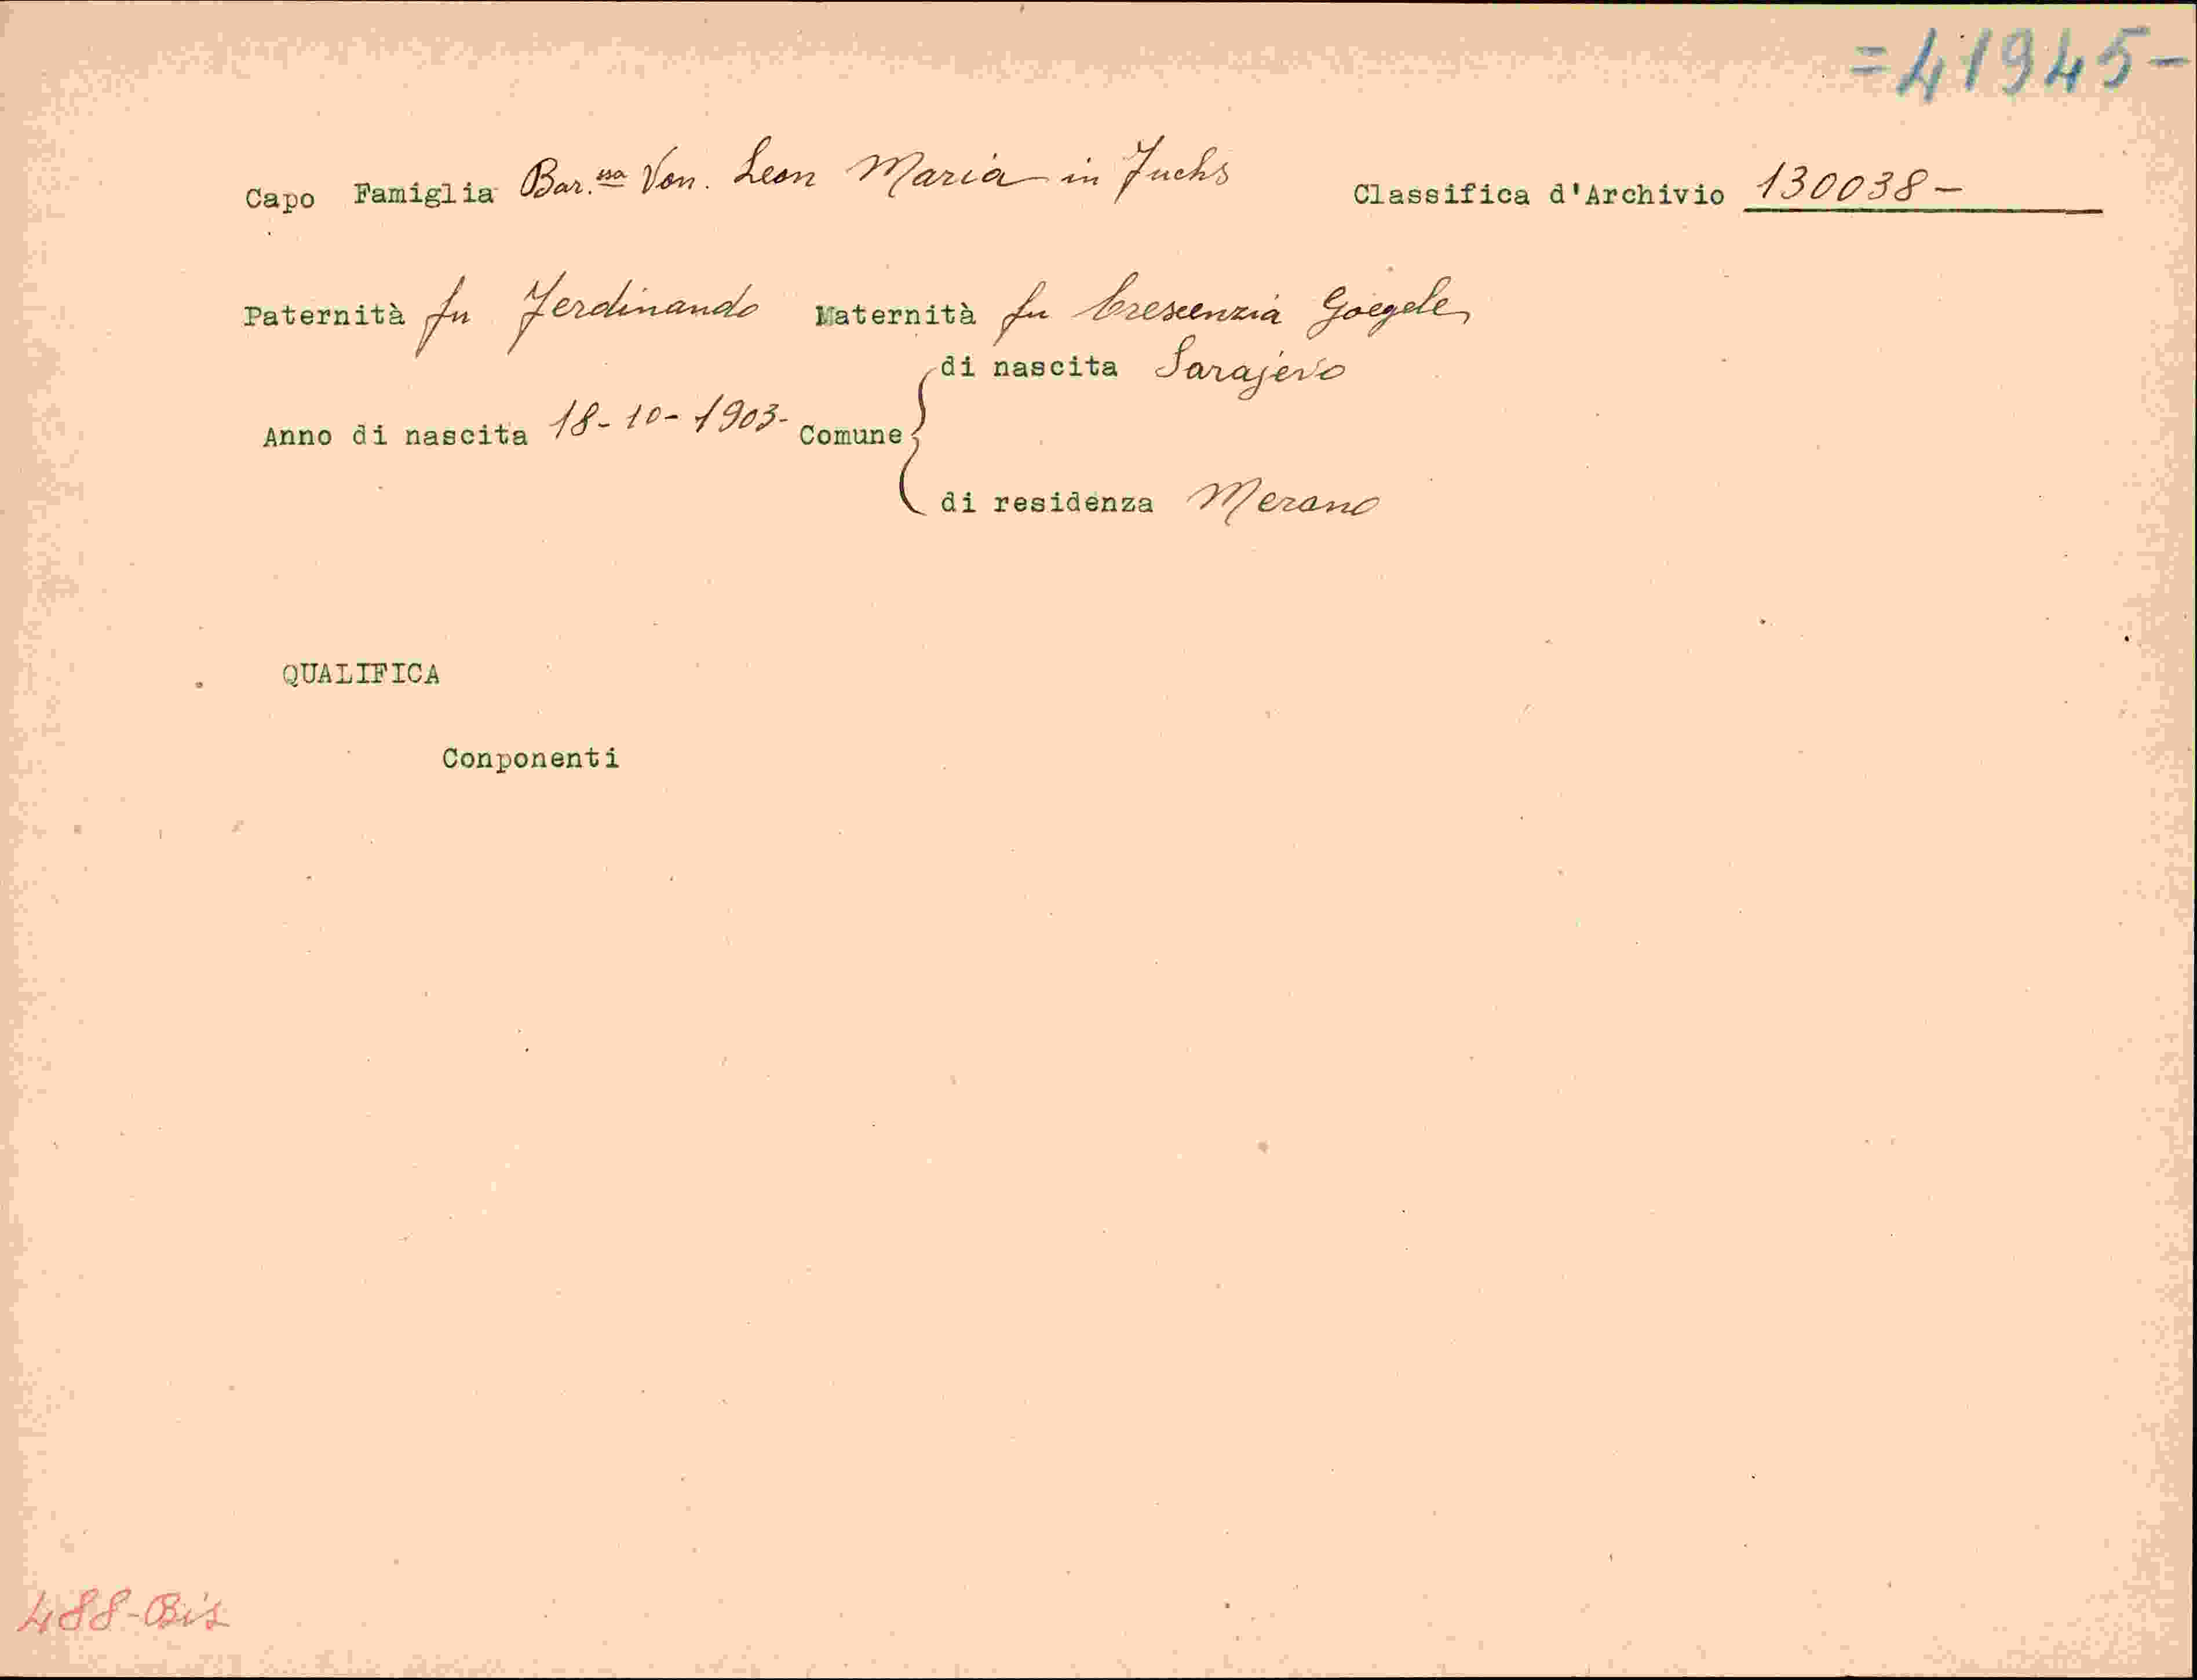 =41945-
Capo Famiglia Bar.ssa Von. Leon Maria in Fuchs Classifica d'Archivio 130038-
Paternità fu Ferdinando Maternità fu Crescenzia Goegele
di nascita Sarajevo
Anno di nascita 18-10-1903- Comune
di residenza Merano
QUALIFICA
Conponenti
488-Bis